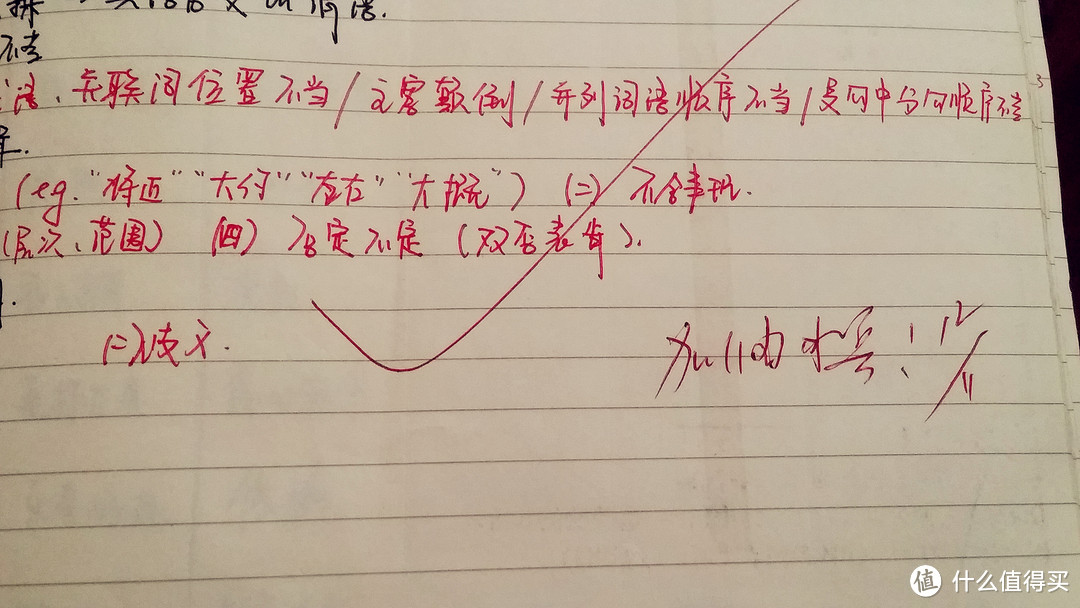 不当
语、关联词位置不当/主客颠倒/并列词语顺序不当/复句中分句顺序不当
(eg."将近""大约""左右""大概") (二)不合事理.
(层次、范围) (四)否定不定(双否表肯).
(二)歧义.
加油 !
12/11
值 什么值得买